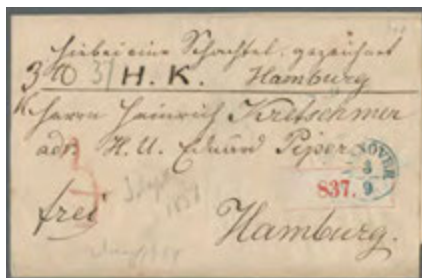 Hiebei eine Schachtel, gezeichnet
3 ℔ 37 H. K. Hamburg
Herrn Heinrich Kretschmer
adr. H. U. Eduard Piper
NOVER
3
9
837.
frei
Hamburg.